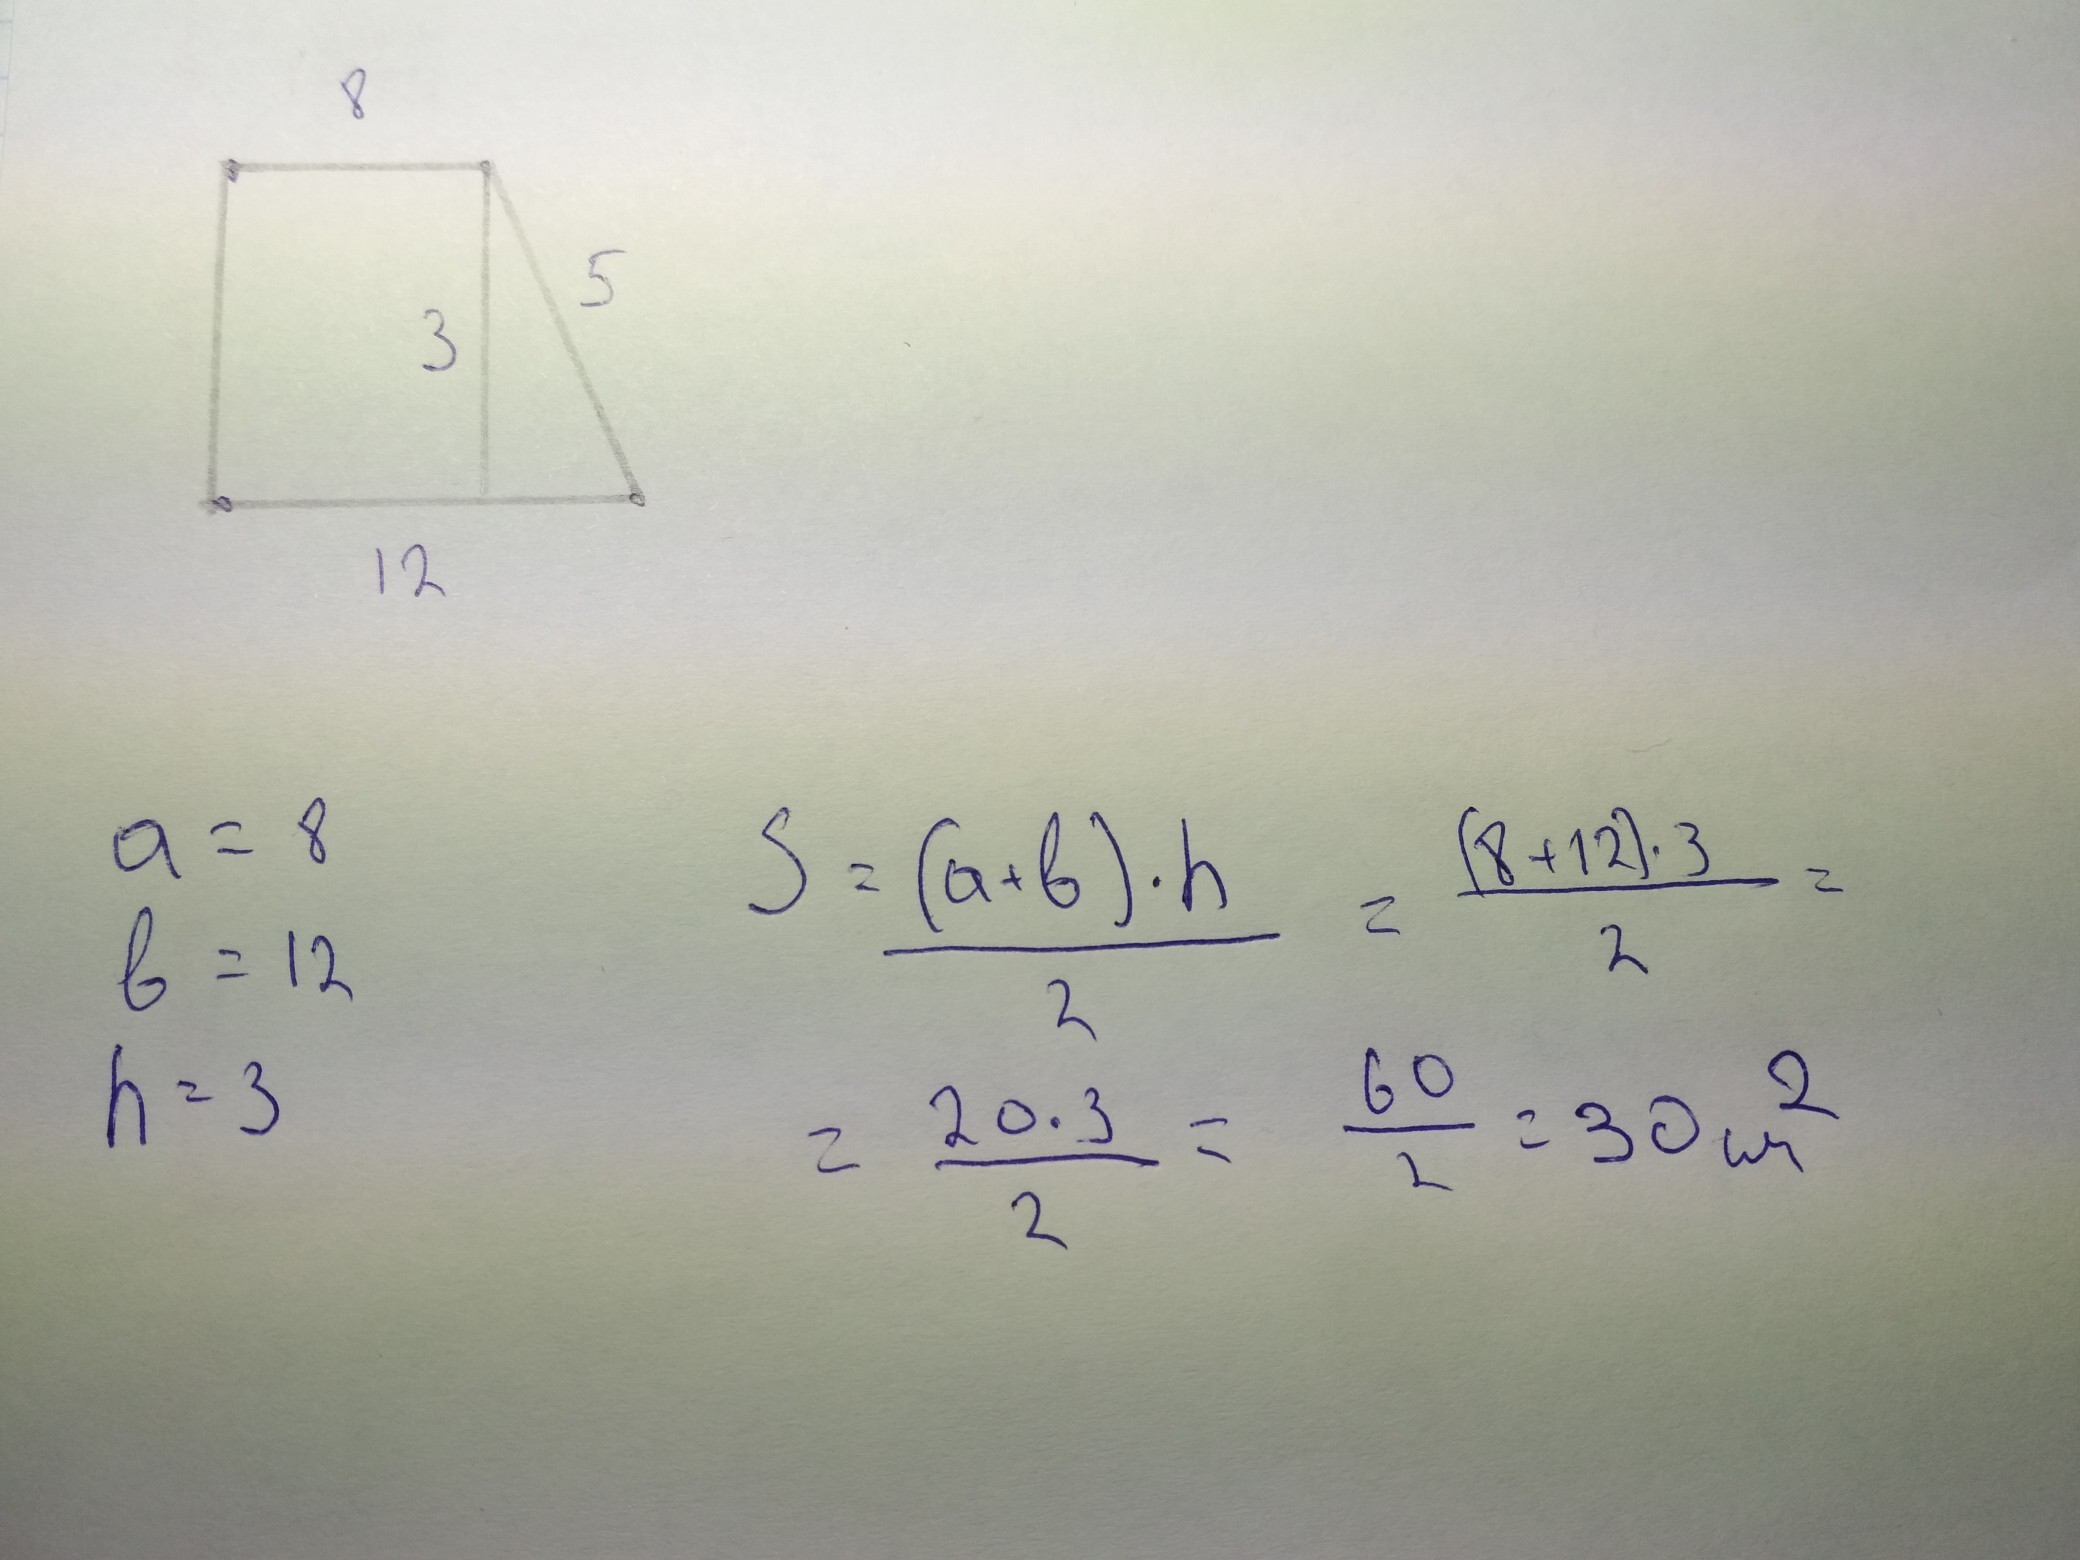 8
5
3
12
a = 8
b = 12
h = 3
S = (a+b)·h / 2 = (8+12)·3 / 2 =
= 20·3 / 2 = 60 / 2 = 30 см²